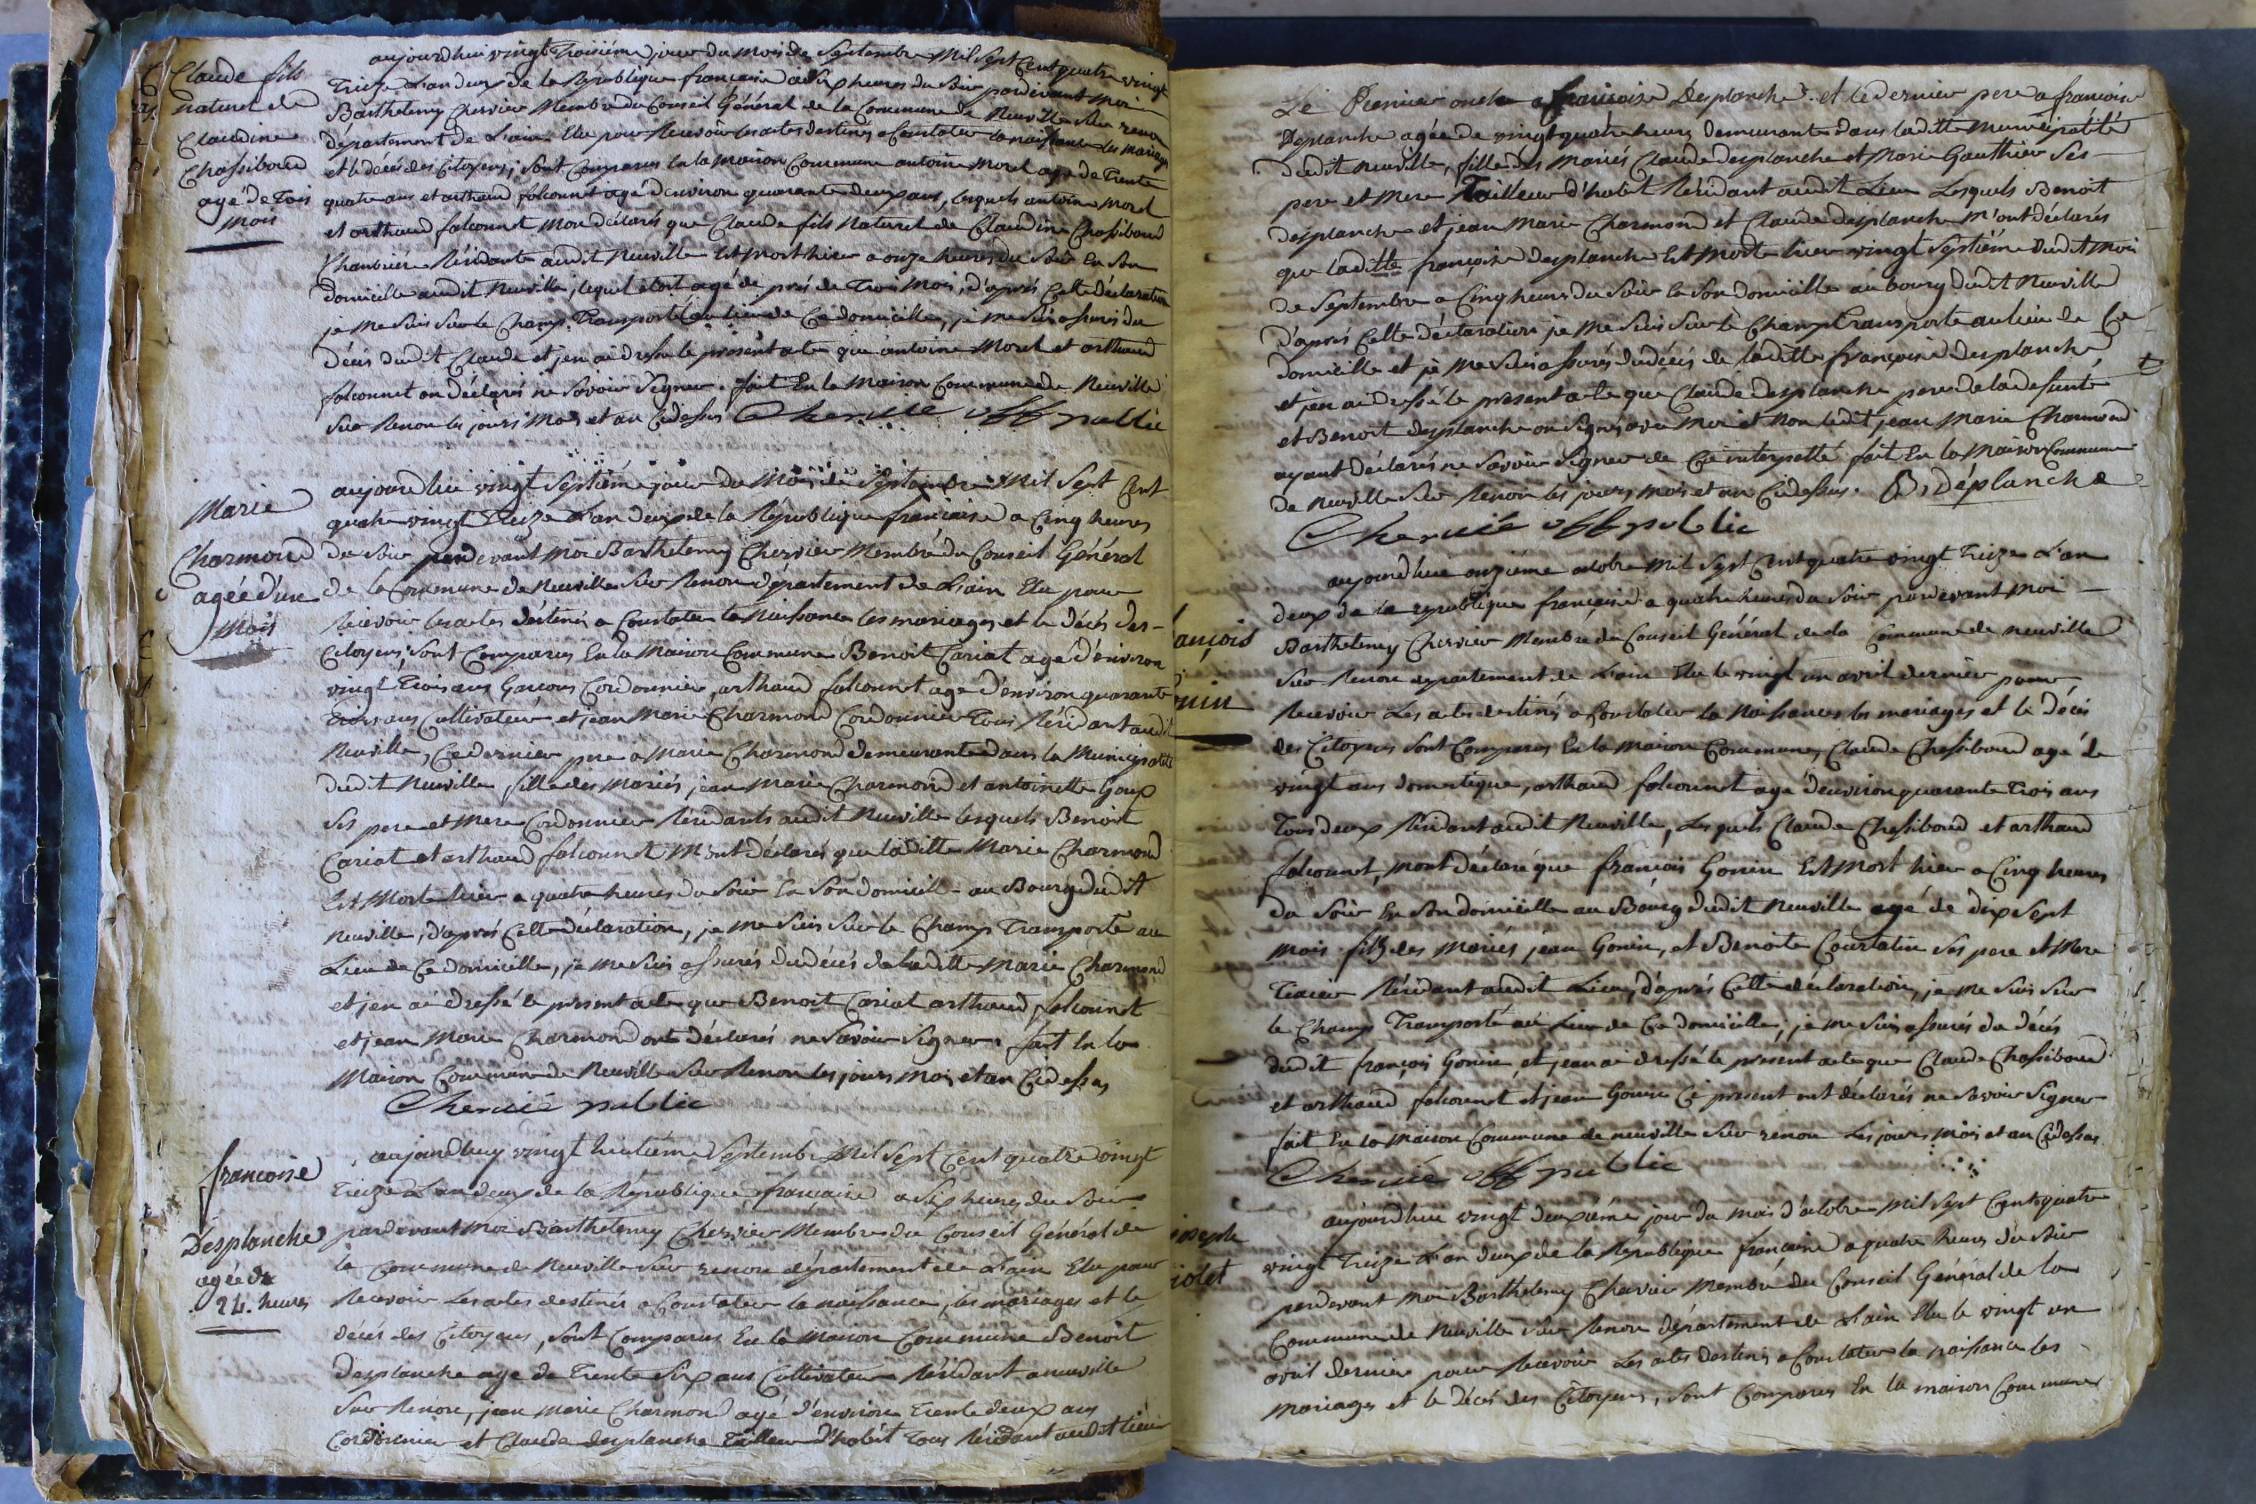 Claude fils
naturel de
Claudine
Chassiboud
agé de Trois
mois
aujourdhui vingt Troisiéme jour du mois de Septembre Mil Sept Cent quatre vingt
Treize L'an deux de la République francaise a Six heures du Soir pardevant Moi
Barthelemy Chervier Membre du Conseil Général de la Commune de Neuville Sur renon
département de L'ain Elu pour Recevoir les actes destinés a Constater la naissance les mariages
et le décés des Citoyens, Sont Comparus En la Maison Commune antoine Morel agé de Trente
quatre ans et arthaud falconnet agé d'environ quarante deux ans, lesquels antoine Morel
et arthaud falconnet Mon déclarés que Claude fils Naturel de Claudine Chassiboud
Chanbriére Résidante audit Neuville Est Mort hier a onze heures du Soir En Son
domicille audit Neuville, lequel étoit agé de prés de Trois Mois, d'aprés Cette déclaration
je Me Suis Sur le Champ Transporté au lieu de Ce domicille, je me Suis assurés du
décés dudit Claude et jen ai dressé le présent acte que antoine Morel et arthaud
falconnet on déclarés ne Savoir Signer. fait En la Maison Commune de Neuville
Sur Renon les jours Mois et an Cidessus Chervié off public
Marie
Charmond
agée d'un
Mois
aujourdhui vingt Septiéme jour du Mois de Septembre Mil Sept Cent
quatre vingt Treize L'an deux de la République francaise a Cinq heures
du Soir pardevant Moi Barthelemy Chervier Membre du Conseil Général
de la Commune de Neuville Sur Renon département de L'ain Elu pour
Recevoir les actes déstinés a Constater la Naissance les mariages et le décés des
Citoyens Sont Comparus En la Maison Commune Benoit Cariat agé d'environ
vingt Trois ans Garcons Cordonnier, arthaud falconnet agé d'environ quarante
Trois ans Cultivateur et jean Marie Charmond Cordonnier Tous Résidant audit
Neuville, Ce dernier pere a Marie Charmond demeurante dans la Municipalité
dudit Neuville fille des Mariés jean Marie Charmond et antoinette Goux
Ses pere et Mere Cordonnier Résidants audit Neuville lesquels Benoit
Cariat et arthaud falconnet M'ont déclarés que laditte Marie Charmond
Est Morte hier a quatre heures du Soir En Son domicill au Bourg dudit
Neuville, d'aprés Cette déclaration, je Me Suis Sur le Champ Transporté au
Lieu de Ce domicille, je me Suis assurés du décés de laditte Marie Charmond
et jen ai dressé le présent acte que Benoit Cariat arthaud falconnet
et jean Marie Charmond ont déclarés ne Savoir Signer. fait En la
Maison Commune de Neuville Sur Renon les jours Mois et an Cidessus
Chervié public
francoise
Desplanche
agée de
24. heures
aujourdhuy vingt huitiéme Septembre Mil Sept Cent quatre vingt
Treize L'an deux de la République francaise a Six heures du Soir
pardevant Moi Barthelemy Chervier Membre du Conseil Général de
la Commune de Neuville Sur renon département de L'ain Elu pour
Recevoir Les actes destinés a Constater la naissance, les mariages et le
décés des Citoyens, Sont Comparus En la Maison Commune Benoit
Desplanche agé de Trente Six ans Cultivateur Résidant a neuville
Sur Renon, jean Marie Charmond agé d'environ Trente deux ans
Cordonnier et Claude Desplanche Tailleur d'habit Tous Résidant audit lieu
Le Premier oncle a francoise Desplanche. et le dernier pere a francoise
Desplanche agée de vingt quatre heures demeurante dans laditte Municipalité
dudit Neuville, fille des Mariés Claude desplanche et Marie Gauthier Ses
pere et Mere Tailleur d'habit Résidant audit Lieu Lesquels Benoit
desplanche et jean Marie Charmond et Claude desplanche M'ont déclarés
que laditte françoise desplanche Est Morte hier vingt Septiéme dudit Moi
de Septembre a Cinq heures du Soir En Son domicille au bourg dudit Neuville
D'aprés Cette déclaration je Me Suis Sur le Champ Transporté au lieu de Ce
domicille et je Me Suis assurés du décés de laditte françoise desplanche
et jen ai dressé le présent acte que Claude desplanche pere de la defunte
et Benoit desplanche on Signés avec Moi et Non ledit jean Marie Charmond
ayant déclarés ne Savoir Signer de Ce interpellé fait En la Maison Commune
de Neuville Sur Renon les jours mois et an Cidessus. B. Déplanche
Chervié off public
ançois
onin
aujourdhui onziéme octobre Mil Sept Cent quatre vingt Treize L'an
deux de la république francaise a quatre heures du Soir pardevant Moi
Barthelemy Chervier Membre du Conseil Général de la Commune de neuville
Sur Renon departement de L'ain Elu le vingt un avril dernier pour
Recevoir Les actes destinés a Constater la Naissances les mariages et le décés
des Citoyens Sont Comparus En la Maison Commune, Claude Chassiboud agé de
vingt ans domestique, arthaud falconnet agé d'environ quarante Trois ans
Tous deux Résidant audit Neuville, Lesquels Claude Chassiboud et arthaud
falconnet, mont déclaré que françois Gonin Est Mort hier a Cinq heures
du Soir En Son domicille au Bourg dudit Neuville agé de dix Sept
mois fils des Mariés jean Gonin, et Benoite Courtatin Ses pere et Mere
Résidant audit Lieu, d'aprés Cette déclaration, je me Suis Sur
le Champ Transporté au Lieu de Ce domicille, je me Suis assurés du décés
dudit françois Gonin, et jean ai dressé le présent acte que Claude Chassiboud
et arthaud falconnet et jean Gonin Ci présent ont déclarés ne Savoir Signer
fait En la Maison Commune de neuville Sur renon Les jours Mois et an Cidessus
Chervié off public
oseph
iolet
aujourdhui vingt deuxiéme jour du mois d'octobre Mil Sept Cent quatre
vingt Treize L'an deux de la République francaise a quatre heures du Soir
pardevant Moi Barthelemy Chervier Membre du Conseil Général de la
Commune de Neuville Sur Renon département de L'ain Elu le vingt un
avril dernier pour Recevoir Les actes destinés a Constater la naissance les
Mariages et le décés des Citoyens, Sont Comparus En la maison Commune